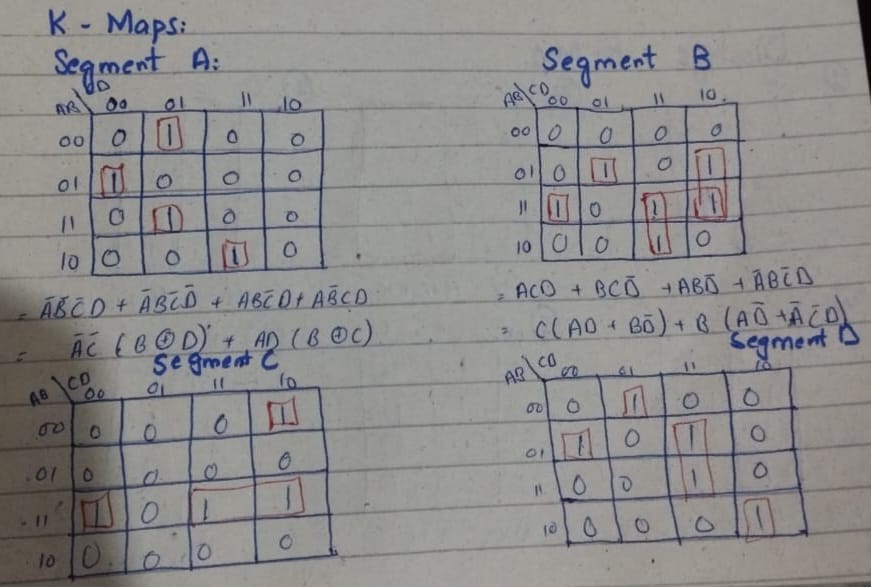 K - Maps:
Segment A:
AB\CD 00 01 11 10
00 0 1 0 0
01 1 0 0 0
11 0 1 0 0
10 0 0 1 0
= ĀB̄C̄D + ĀBC̄D̄ + ABC̄D + AB̄CD
= ĀC̄ (B ⊕ D) + AD (B ⊕ C)
Segment B
AB\CD 00 01 11 10
00 0 0 0 0
01 0 1 0 1
11 1 0 1 1
10 0 0 1 0
= ACD + BCD̄ + ABD̄ + ĀBC̄D
= C(AD + BD̄) + B (AD̄ + ĀC̄D)
Segment C
AB\CD 00 01 11 10
00 0 0 0 1
01 0 0 0 0
11 1 0 1 1
10 0 0 0 0
Segment D
AB\CD 00 01 11 10
00 0 1 0 0
01 1 0 1 0
11 0 0 1 0
10 0 0 0 1